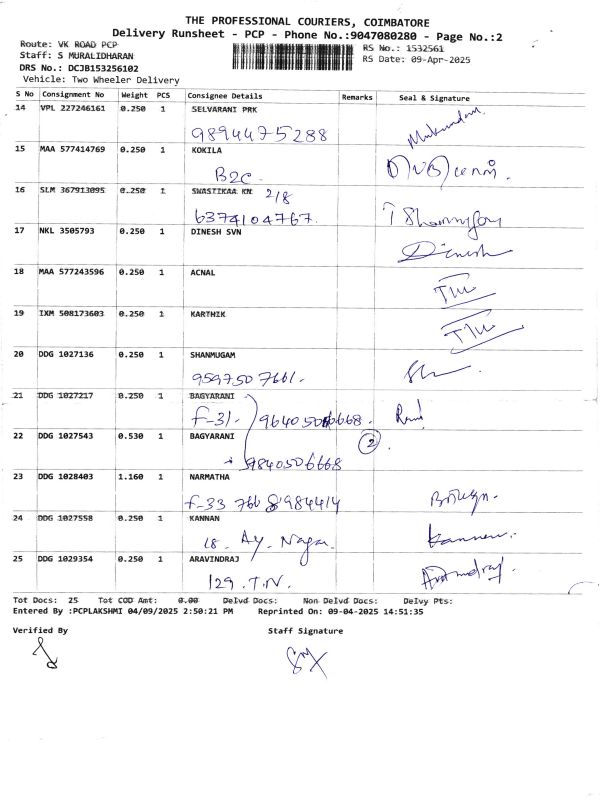 THE PROFESSIONAL COURIERS, COIMBATORE
Delivery Runsheet - PCP - Phone No.:9047080280 - Page No.:2
Route: VK ROAD PCP
Staff: S MURALIDHARAN
DRS No.: DCJB153256102
Vehicle: Two Wheeler Delivery
RS No.: 1532561
RS Date: 09-Apr-2025
S No Consignment No Weight PCS Consignee Details Remarks Seal & Signature
14 VPL 227246161 0.250 1 SELVARANI PRK
9894475288 Mukundan
15 MAA 577414769 0.250 1 KOKILA
B2C
16 SLM 367913095 0.250 1 SWASTIKAA KN 2/8
6374104767
17 NKL 3505793 0.250 1 DINESH SVN
Dinesh
18 MAA 577243596 0.250 1 ACNAL
19 IXM 508173603 0.250 1 KARTHIK
20 DDG 1027136 0.250 1 SHANMUGAM
9597507661.
21 DDG 1027217 0.250 1 BAGYARANI
F-31.
22 DDG 1027543 0.530 1 BAGYARANI 2
9840506668
23 DDG 1028403 1.160 1 NARMATHA
F-33
24 DDG 1027558 0.250 1 KANNAN
18. Ay. Nagar Kannan
25 DDG 1029354 0.250 1 ARAVINDRAJ
129.T.N. Aravindraj
Tot Docs: 25 Tot COD Amt: 0.00 Delvd Docs: Non Delvd Docs: Delvy Pts:
Entered By :PCPLAKSHMI 04/09/2025 2:50:21 PM Reprinted On: 09-04-2025 14:51:35
Verified By Staff Signature